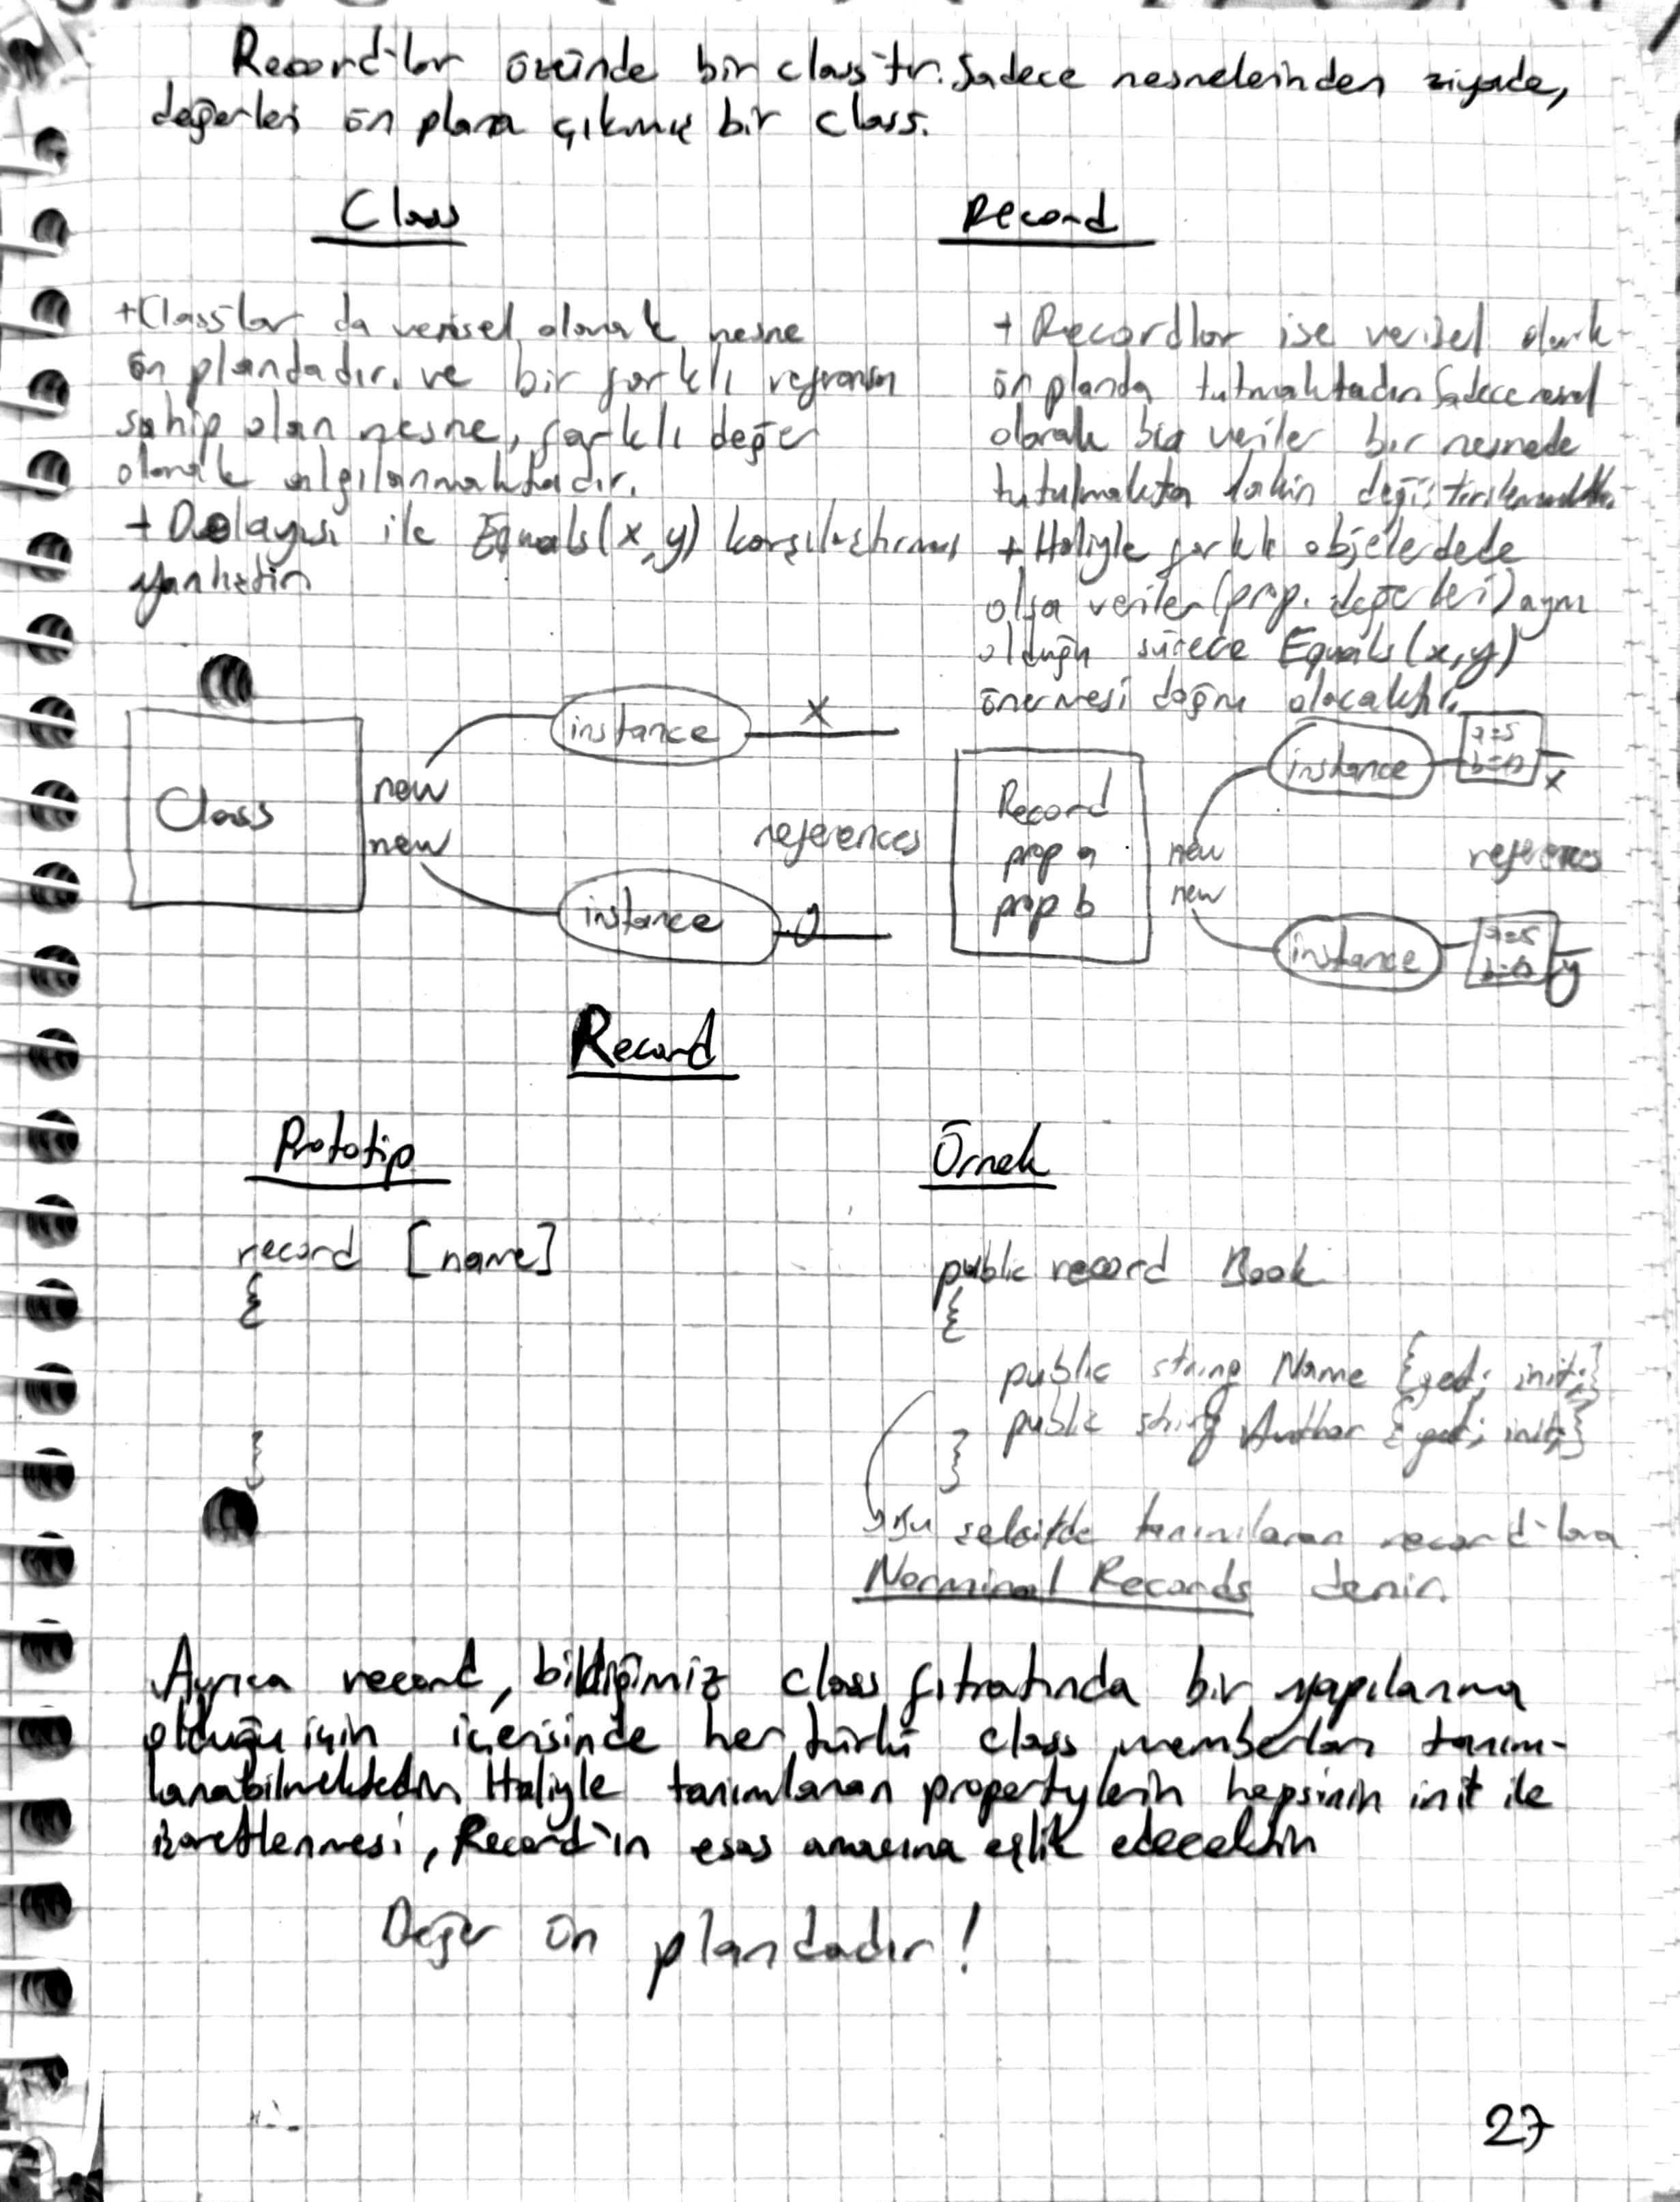 Record'lar özünde bir class'tır. Sadece nesnelerinden ziyade,
değerleri ön plana çıkmış bir class.
Class
+Class'lar da verisel olarak nesne
ön plandadır. ve bir farklı referansa
sahip olan nesne, farklı değer
olarak algılanmaktadır.
+ Dolayısı ile Equals(x,y) karşılaştırması
yanlıştır.
Record
+ Recordlar ise verisel olarak
ön planda tutmaktadır. Sadece
olarak bu veriler bir nesnede
tutulmakta lakin
+ Haliyle farklı objelerdede
olsa veriler (prop. değerleri) aynı
olduğu sürece Equals(x,y)
önermesi doğru olacaktır.
Class
new
new
instance
x
references
instance
Record
prop a
prop b
new
new
instance
a=5
x
references
instance
a=5
y
Record
Prototip
record [name]
{
}
Örnek
public record Book
{
public string Name {get; init;}
public string Author {get; init;}
}
Bu şekilde tanımlanan record'lara
Norminal Records denir.
Ayrıca record, bildiğimiz class fıtratında bir yapılanma
olduğu için içerisinde her türlü class memberları tanım-
lanabilmektedir. Haliyle tanımlanan propertylerin hepsinin init ile
işaretlenmesi, Record'ın esas amacına eşlik edecektir.
Değer ön plandadır!
27